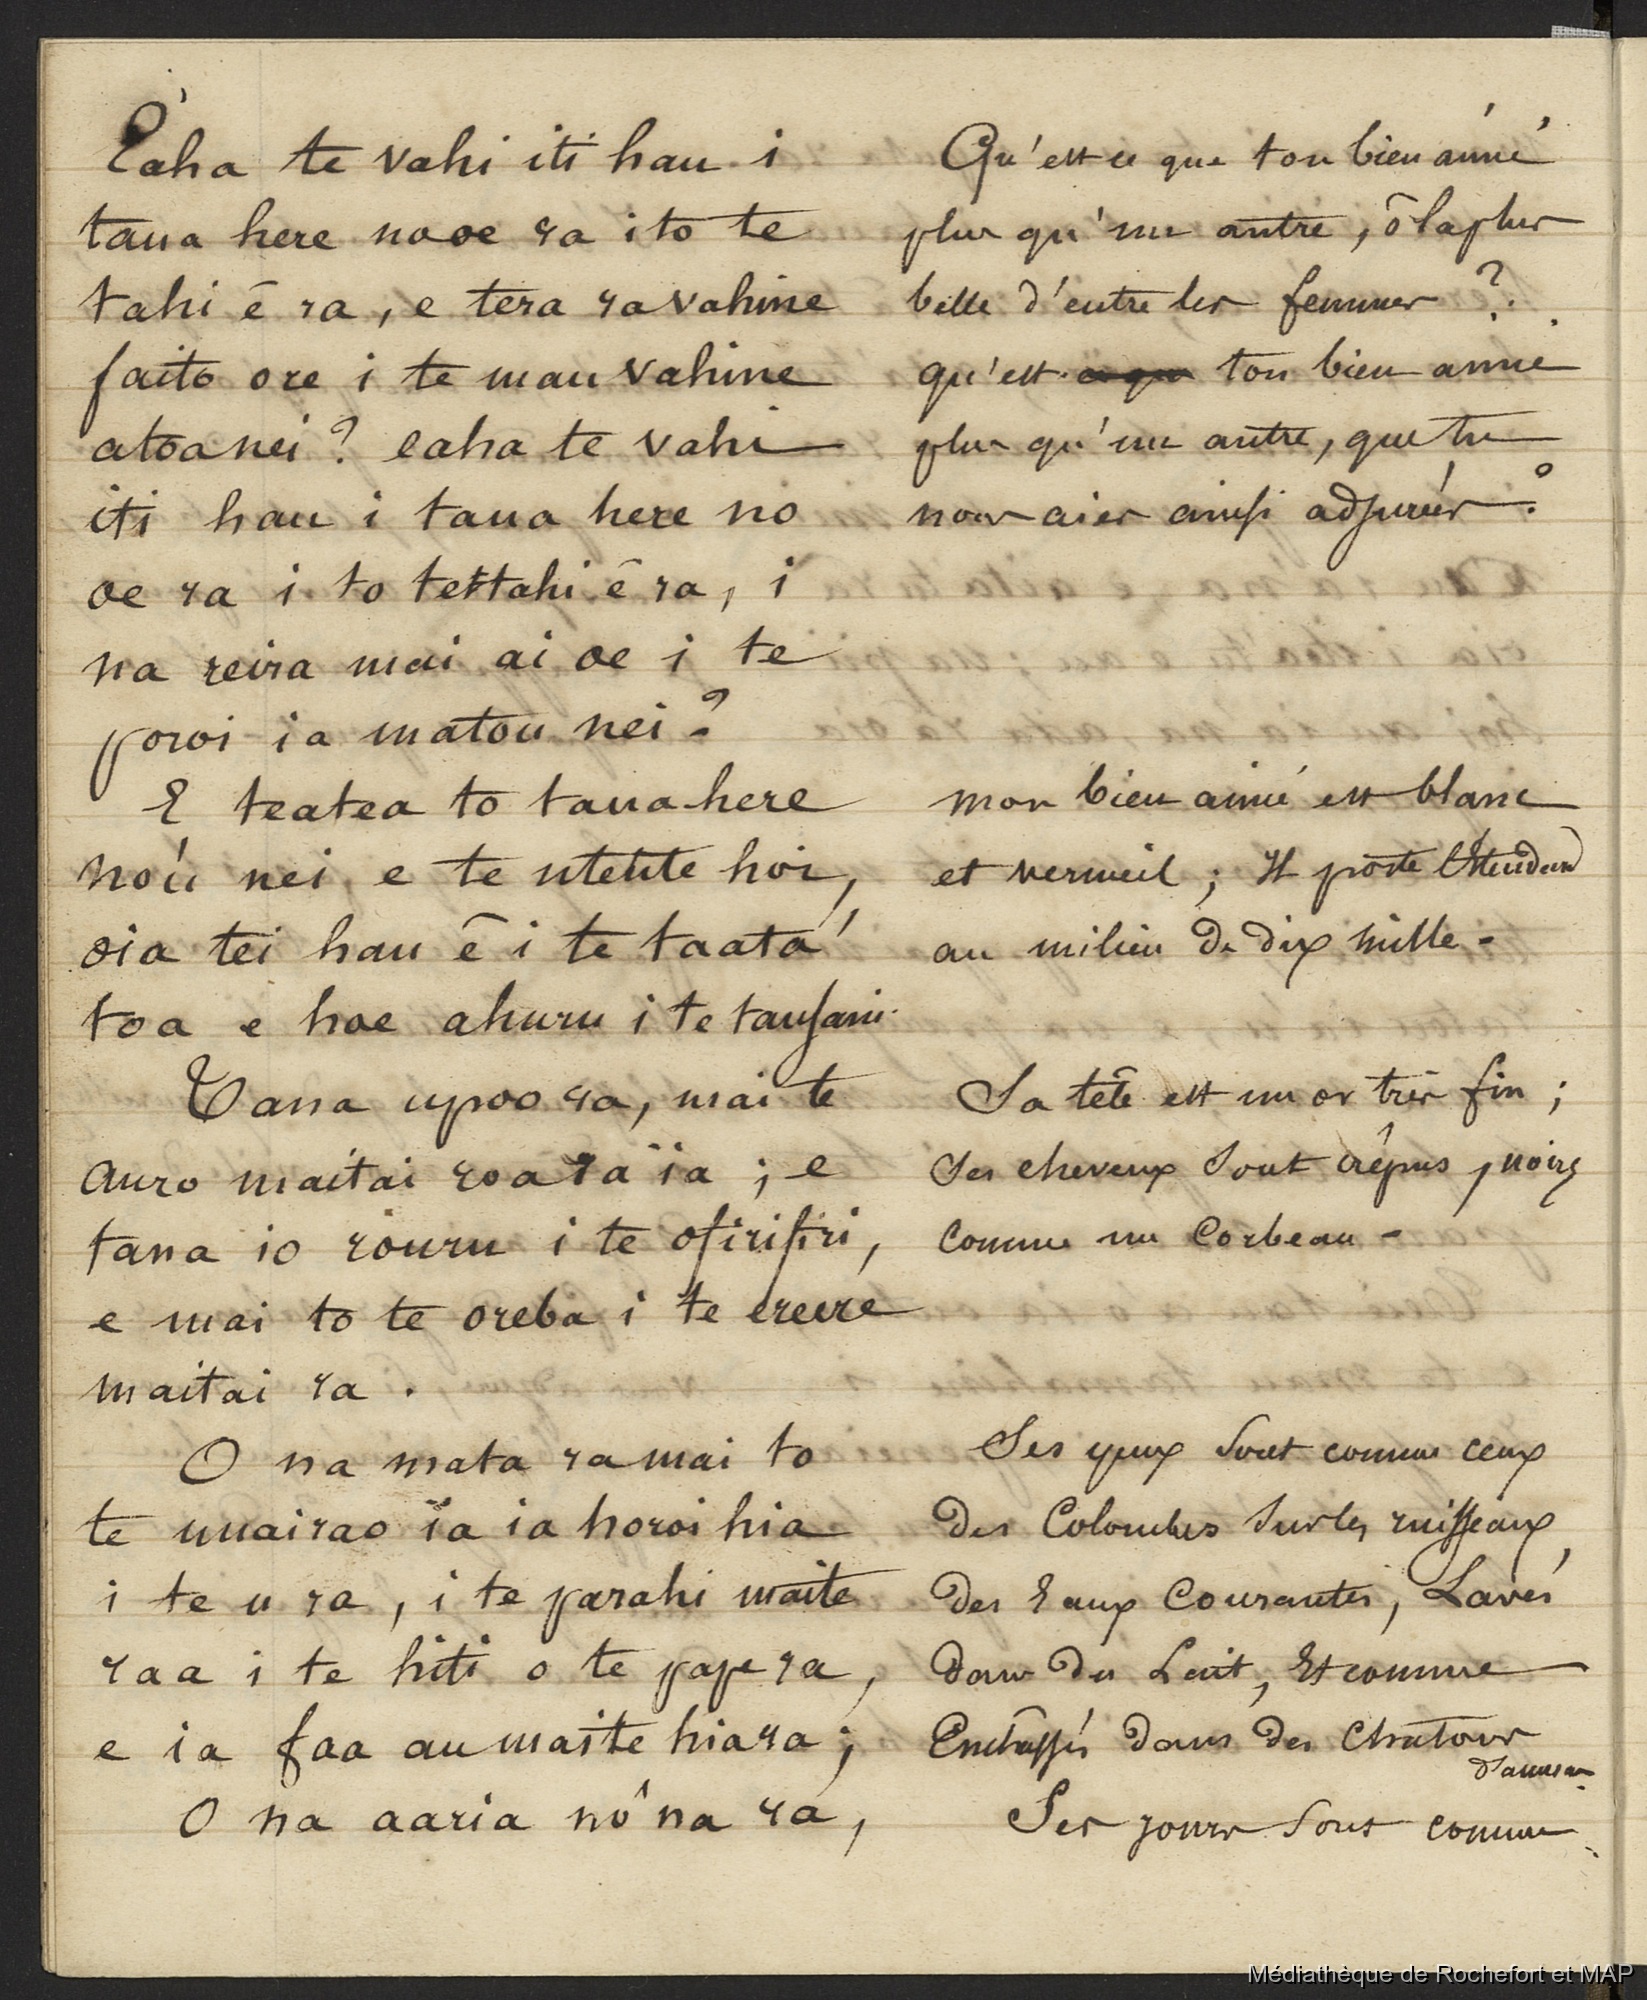 Eaha te vahi iti hau i
taua here no oe ra i to te
tahi ê ra, e tera ra vahine
faito ore i te mau vahine
atoa nei ? eaha te vahi
iti hau i taua here no
oe ra i to te tahi ê ra, i
na reira mai ai oe i te
poroi ia matou nei ?
E teatea to taua here
no'u nei e te uteute hoi,
oia tei hau ê i te taata
toa e hoe ahuru i te tausani.
Tana upoo ra, mai te
auro maitai roa ra ïa ; e
tana io rouru i te ofirifiri,
e mai to te oreba i te ereere
maitai ra .
O na mata ra mai to
te uuairao ïa ia horoi hia
i te u ra, i te parahi maite
raa i te hiti o te pape ra,
e ia faa au maite hia ra ;
O na aaria nô na ra,
Qu'est ce que ton bien aimé
plus qu'un autre, ô la plus
belle d'entre les femmes ?
qu'est ce que ton bien aimé
plus qu'un autre, que tu
nous aies ainsi adjurés ?
mon bien aimé est blanc
et vermeil ; Il porte l'Etendard
au milieu de dix mille -
Sa tête est un or très fin ;
Ses cheveux sont crépus, noirs
comme un Corbeau -
Ses yeux sont comme ceux
des Colombes sur les ruisseaux
des Eaux Courantes, Lavés
dans du Lait, Et comme
Enchâssés dans des Chatons
d'anneau
Ses joues sont comme
Médiathèque de Rochefort et MAP